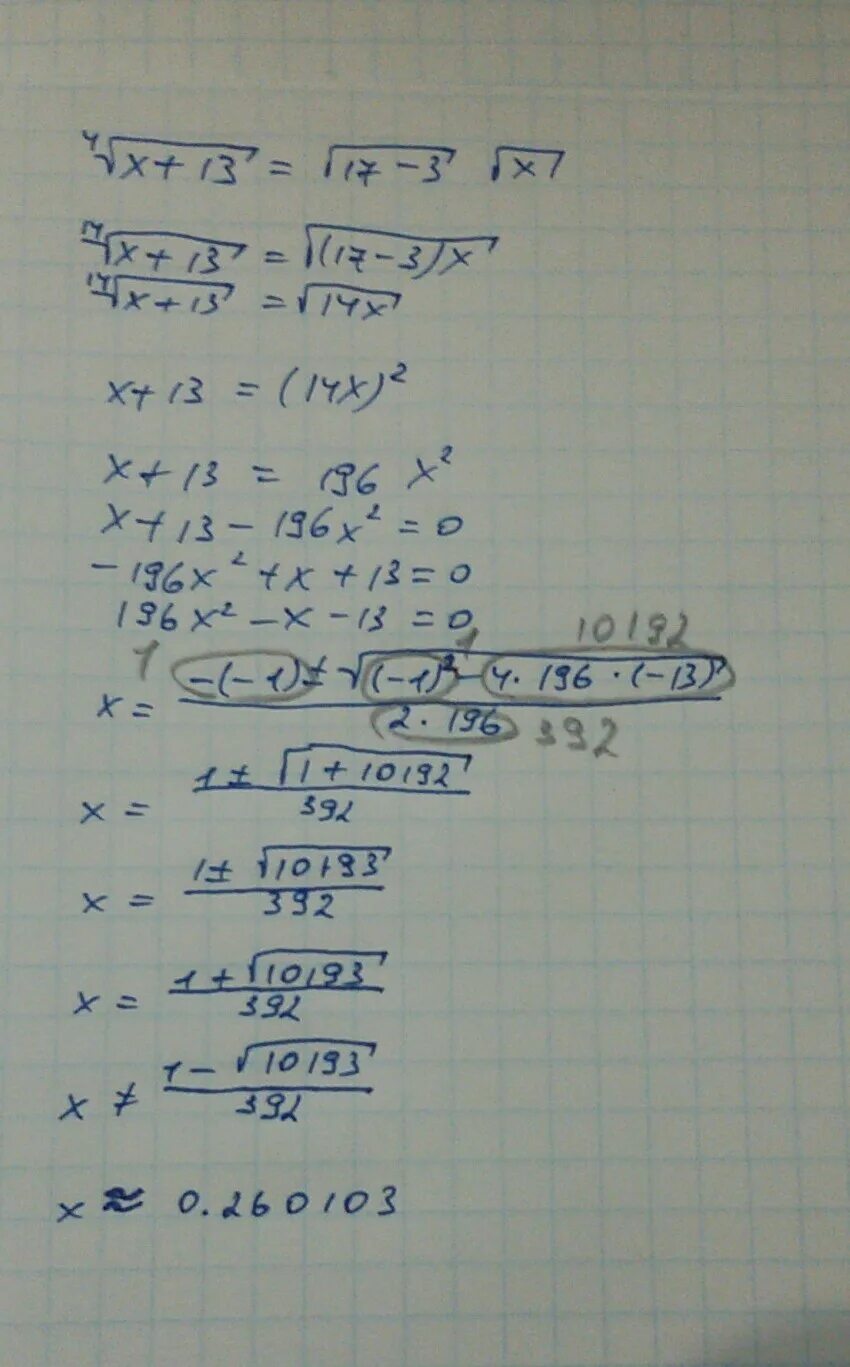 ⁴√(x + 13) = √(17 - 3) √x
¹⁴√(x + 13) = √((17 - 3)x)
¹⁴√(x + 13) = √(14x)
x + 13 = (14x)²
x + 13 = 196 x²
x + 13 - 196x² = 0
-196x² + x + 13 = 0
196x² - x - 13 = 0
1 1 10192
x = (-(-1) ± √((-1)² - 4 · 196 · (-13))) / (2 · 196) 392
x = (1 ± √(1 + 10192)) / 392
x = (1 ± √10193) / 392
x = (1 + √10193) / 392
x ≠ (1 - √10193) / 392
x ≈ 0.260103